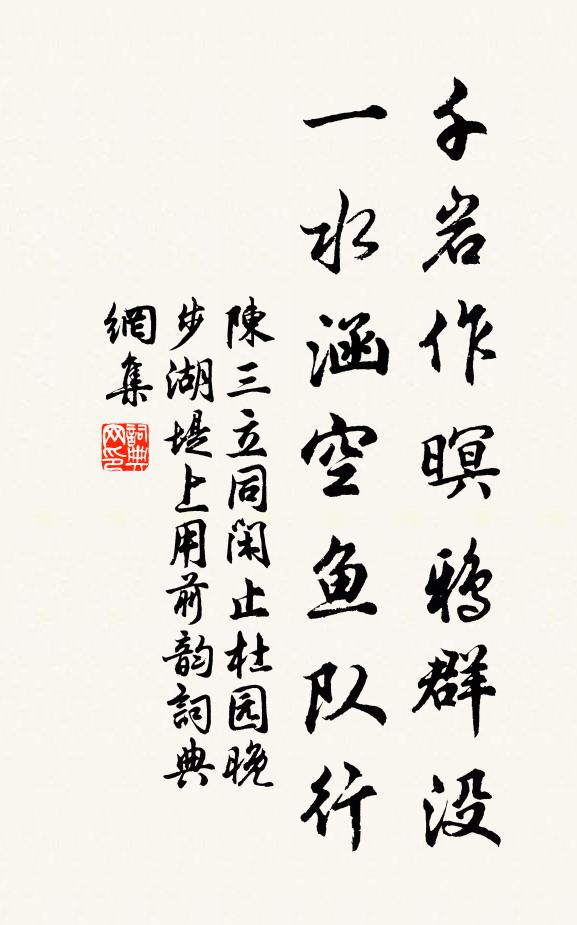 千岩作暝鸦群没
一水涵空鱼队行
陳三立同閑止杜园晚
步湖堤上用前韵詞典
網集
詞典
网印